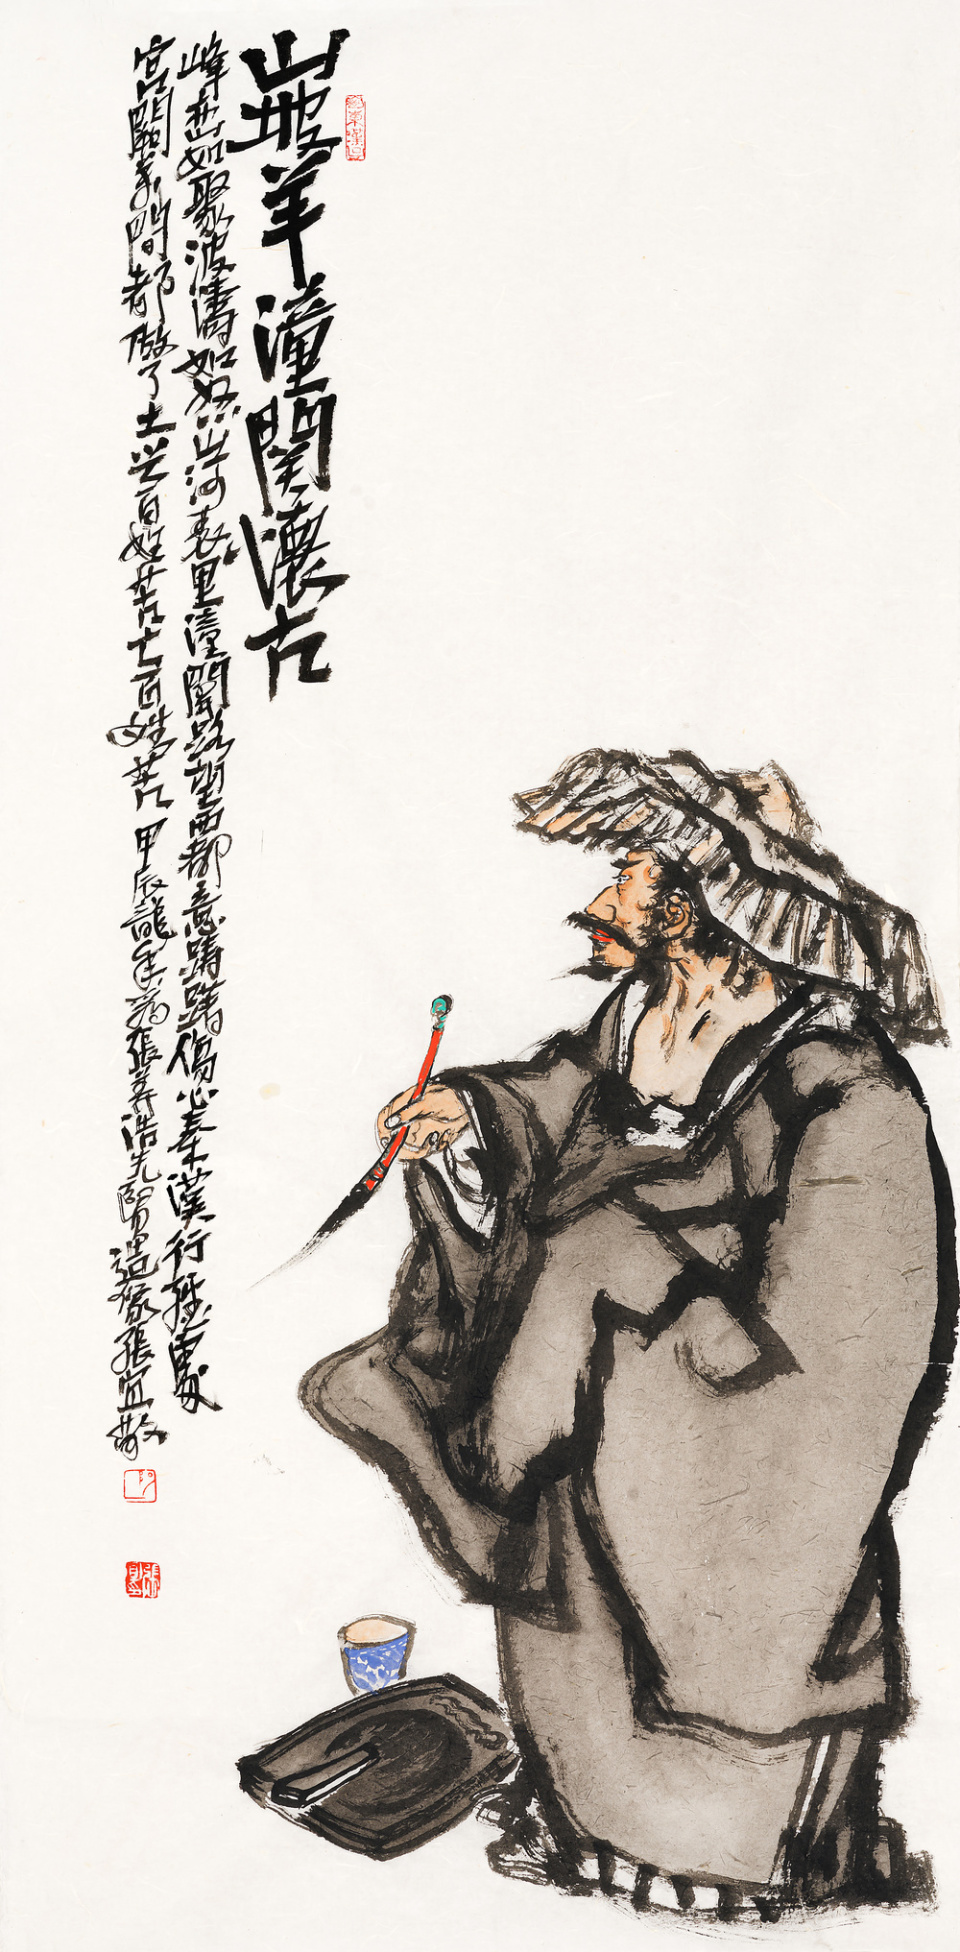 山坡羊潼関懷古
峰峦如聚波濤如怒山河表里潼關路望西都意躊躇傷心秦漢行經處
宮闕萬間都做了土兴百姓苦亡百姓苦甲辰龍年為張養浩先賢造像張宜敬